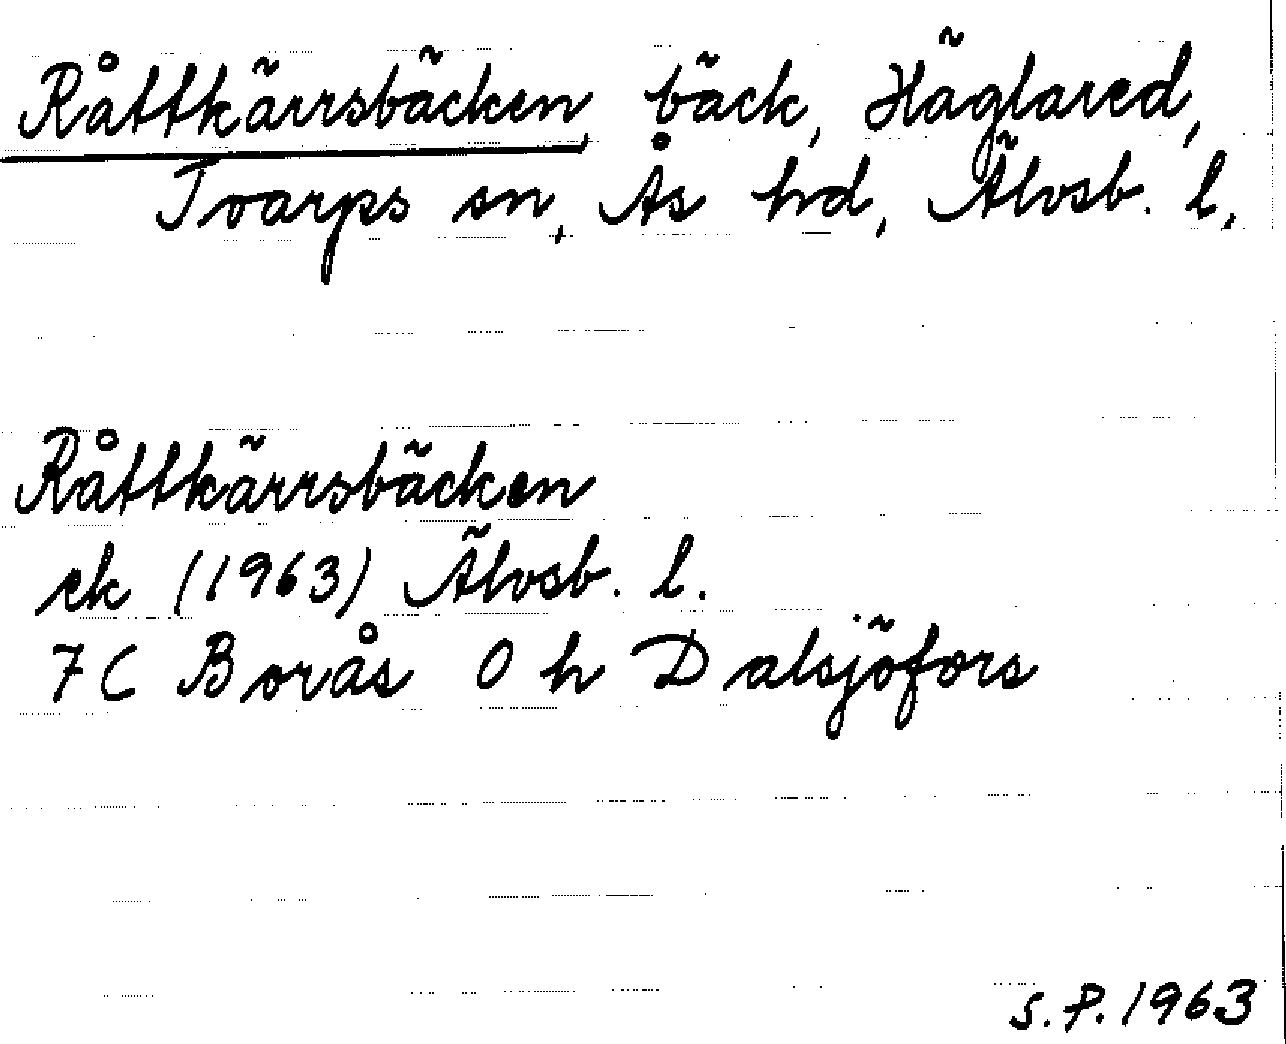 Råttkärrsbäcken, bäck, Häglared,
Toarps sn, Ås hd, Älvsb. l,
Råttkärrsbäcken
ek (1963) Älvsb. l.
7C Borås 0 h Dalsjöfors
S.P. 1963